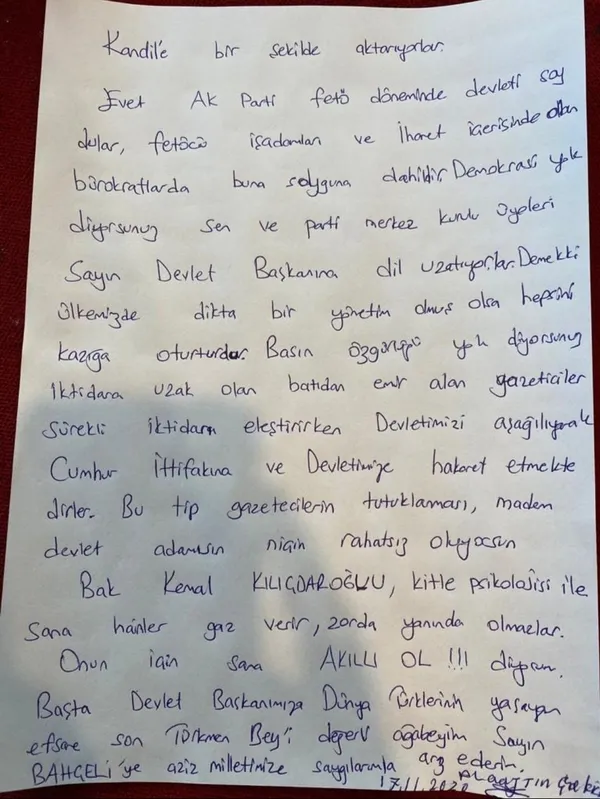 Kandil'e bir şekilde aktarıyorlar.
Evet Ak Parti fetö döneminde devleti soy
dular, fetöcü işadamları ve İhanet içerisinde olan
bürokratlarda buna soyguna dahildir. Demokrasi yok
diyorsunuz sen ve parti merkez kurulu üyeleri
Sayın Devlet Başkanına dil uzatıyorlar. Demekki
ülkemizde dikta bir yönetim olmuş olsa hepsini
kazığa oturturdu. Basın özgürlüğü yok diyorsunuz
iktidara uzak olan batıdan emir alan gazeticiler
sürekli iktidarı eleştirirken Devletimizi aşağılıyarak
Cumhur İttifakına ve Devletimize hakaret etmekte
dirler. Bu tip gazetecilerin tutuklaması, madem
devlet adamısın niçin rahatsız oluyorsun
Bak Kemal KILIÇDAROĞLU, kitle psikolojisi ile
sana hainler gaz verir, zorda yanında olmazlar.
Onun için sana AKILLI OL !!! diyorum.
Başta Devlet Başkanımıza Dünya Türklerinin yaşayan
efsane son Türkmen Bey'i değerli ağabeyim Sayın
BAHÇELİ'ye aziz milletimize saygılarımla arz ederim.
17.11.2020 Alaattin Çakıcı